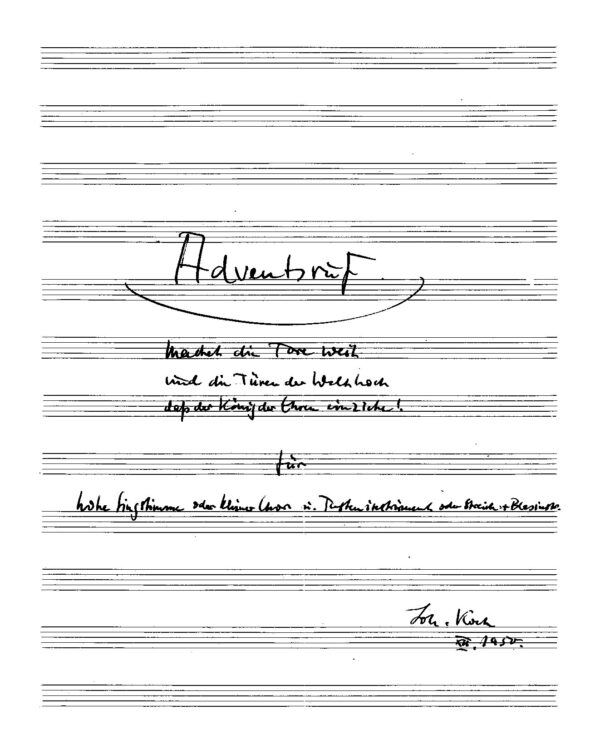 Adventsruf
Machet die Tore weit
und die Türen der Welt hoch
daß der König der Ehren einziehe!
für
hohe Singstimme oder kleiner Chor u. Tasteninstrument oder Streich + Blasinstr.
Joh. Koch
XII. 1950.